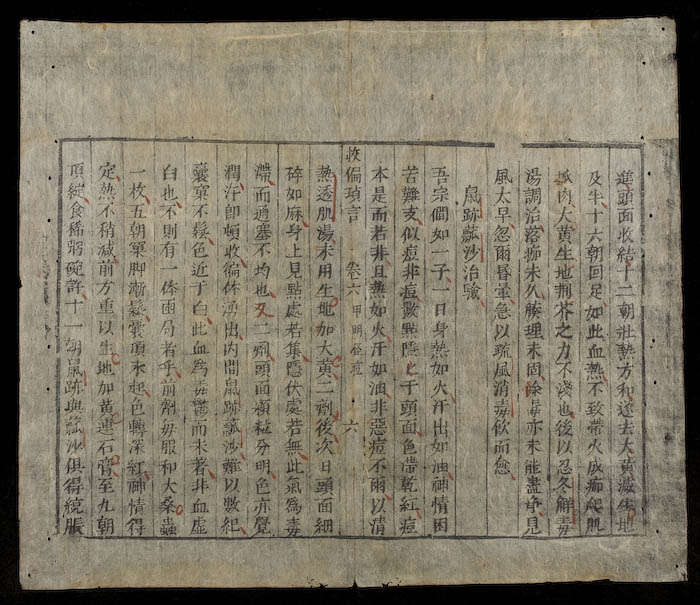 進頭面收結十二朝壯熱方和遂去大黃減生地
及半十六朝回足如此血熱不致帶火成痂爬肌
抓肉大黃生地荆芥之力不淺也後以忍冬解毒
湯調治落痂未久腠理未固除毒亦未能盡净見
風太早忽爾昏暈急以疏風消毒飲而愈
鼠跡蠶沙治驗
吾宗間如一子一日身熱如火汗出如油神情困
苦難支似痘非痘數點隱上于頭面色帶乾紅痘
本是而若非且熱如火汗如油非惡痘不爾以清
救偏瑣言 卷六 甲明怪痘 六
熱透肌湯末用生地加大黃二劑後次日頭面細
碎如麻身上見點處若集隱伏處若無此氣為毒
滯而通塞不均也又二劑頭面顆粒分明色亦覺
潤汗卽頓收徧体湧出内間鼠跡蠶沙難以數紀
囊窠不鬆色近于白此血為毒鬱而未著非血虛
白也不則有一倖面局者乎前劑毋服和大桑蟲
一枚五朝窠脚漸鬆囊頂未起色轉深紅神情得
定熱不稍減前方重以生地加黃連石膏至九朝
頂綻食稀粥碗許十一朝鼠跡與蠶沙俱得綻脹